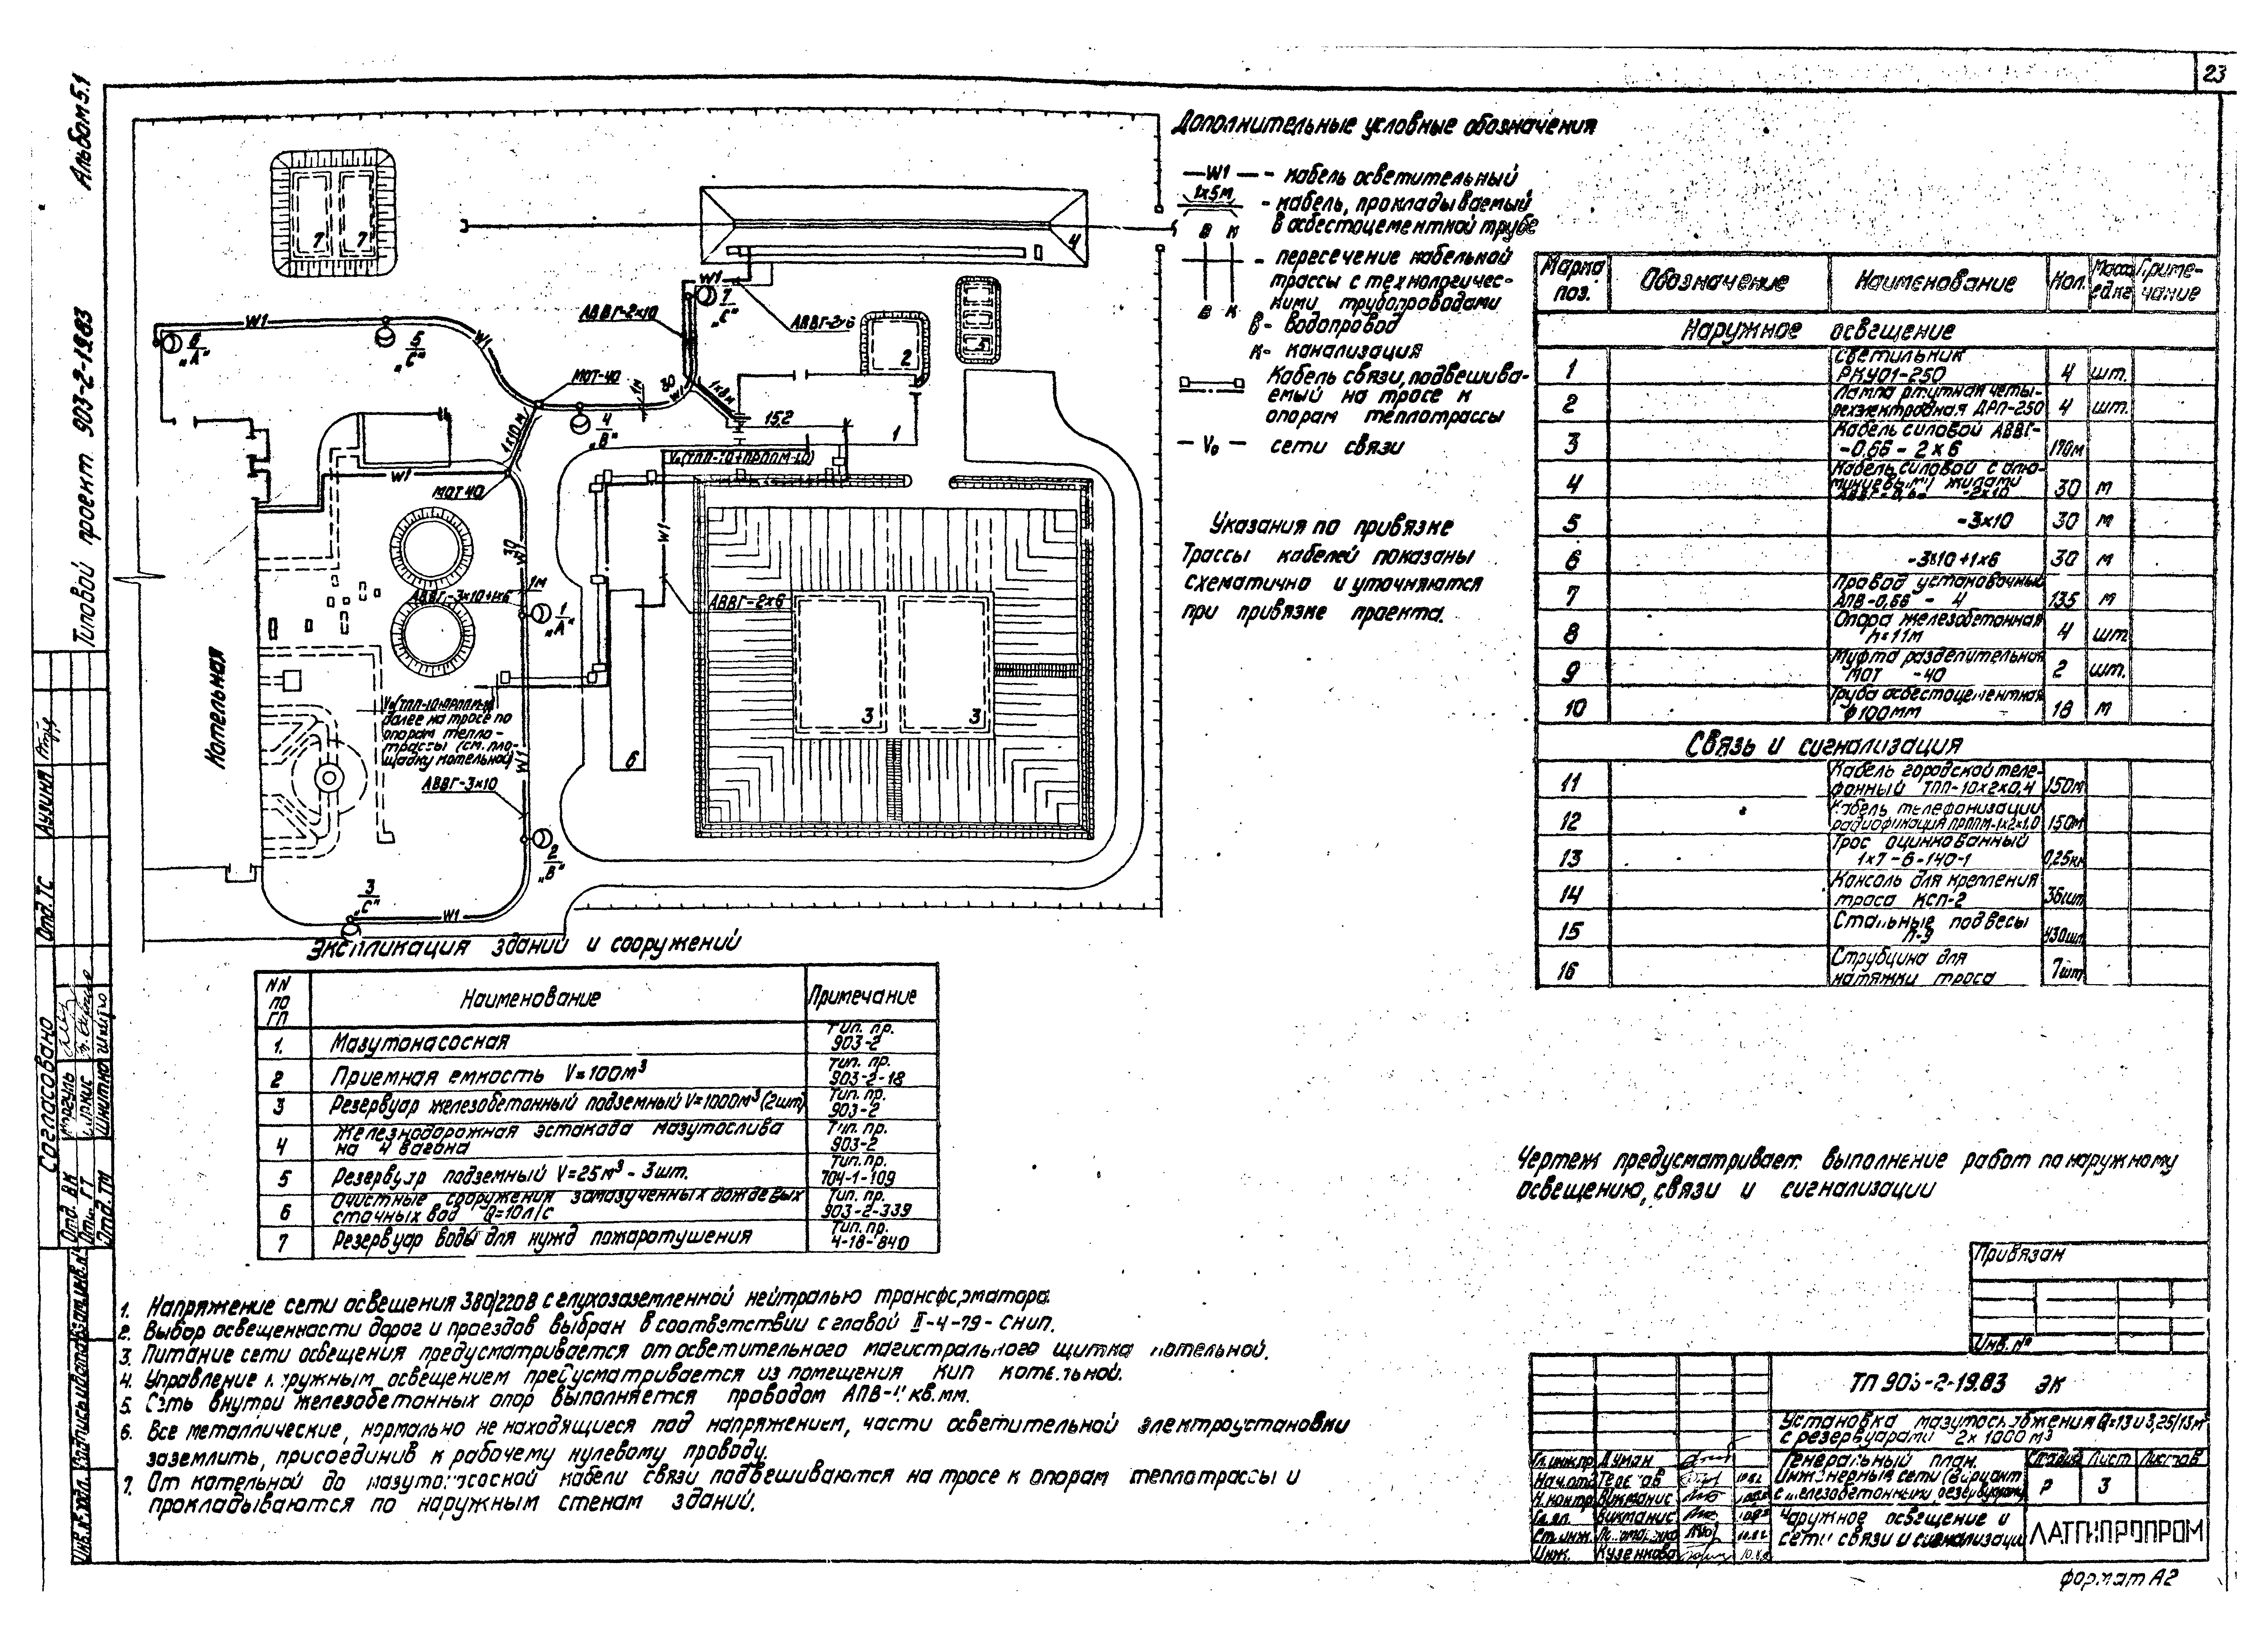 23
Альбом 5.1
Типовой проект 903-2-19.83
Дополнительные условные обозначения
—W1— - кабель осветительный
1х5м - кабель, прокладываемый
в асбестоцементной трубе
в к
- пересечение кабельной
трассы с технологичес-
кими трубопроводами
в к
в- водопровод
к- канализация
Кабель связи, подвешива-
емый на тросе к
опорам теплотрассы
— V₀ — сети связи
Указания по привязке
Трассы кабелей показаны
схематично и уточняются
при привязке проекта.
7 7
4
W1
7
"С"
АВВГ-2х10
АВВГ-2х6
2
5
6
"А"
W1
5
"С"
W1
МОТ-40
1м
30
W1
1х8м
4
"В"
15.2
1
1х10м
V₀(ТПП-10+ПРППМ-1.0)
W1
МОТ 40
30
W1
W1
1м
АВВГ-3х10+1х6
1
"А"
АВВГ-2х6
Котельная
3 3
6
далее на тросе по
опорам тепло-
трассы (см. пло-
щадку котельной)
W1
АВВГ-3х10
2
"В"
3
"С"
W1
Марка поз. Обозначение Наименование Кол. Масса ед.кг Приме-чание
Наружное освещение
1 Светильник РКУ01-250 4 шт.
2 Лампа ртутная четы-рехэлектродная ДРЛ-250 4 шт.
3 Кабель силовой АВВГ--0,66 - 2х6 170м
4 Кабель силовой с алю-миниевыми жилами -2х10 30 м
5 -3х10 30 м
6 -3х10+1х6 30 м
7 Провод установочный АПВ-0,66 - 4 135 м
8 Опора железобетонная h=11м 4 шт
9 Муфта разделительная МОТ -40 2 шт.
10 Труба асбестоцементная ф100мм 18 м
Связь и сигнализация
11 Кабель городской теле-фонный ТПП-10х2х0,4 150м
12 Кабель телефонизации радиофикация ПРППМ-1х2х1,0 150м
13 Трос оцинкованный 1х7-6-140-1 0,25км
14 Консоль для крепления троса КСП-2 36шт
15 Стальные подвесы 430шт
16 Струбцина для натяжки троса 7шт
Экспликация зданий и сооружений
NN по ГП Наименование Примечание
1. Мазутонасосная Тип. пр. 903-2
2 Приемная емкость V=100м³ Тип. пр. 903-2-18
3 Резервуар железобетонный подземный V=1000м³ (2шт) Тип. пр. 903-2
4 Железнодорожная эстакада мазутослива на 4 вагона Тип. пр. 903-2
5 Резервуар подземный V=25м³ - 3шт. Тип.пр. 704-1-109
6 Очистные сооружения замазученных дождевых сточных вод Q=10л/с Тип. пр. 903-2-339
7 Резервуар воды для нужд пожаротушения Тип. пр. 4-18-840
Чертеж предусматривает выполнение работ по наружному
освещению, связи и сигнализации
1. Напряжение сети освещения 380/220В с глухозаземленной нейтралью трансформатора.
2. Выбор освещенности дорог и проездов выбран в соответствии с главой II-4-79-СНиП.
3. Питание сети освещения предусматривается от осветительного магистрального щитка котельной.
4. Управление наружным освещением предусматривается из помещения КИП котельной.
5. Сеть внутри железобетонных опор выполняется проводом АПВ-4 кв.мм.
6. Все металлические, нормально не находящиеся под напряжением, части осветительной электроустановки
заземлить, присоединив к рабочему нулевому проводу.
7. От котельной до мазутонасосной кабели связи подвешиваются на тросе к опорам теплотрассы и
прокладываются по наружным стенам зданий.
Привязан
Инв. №
ТП 903-2-19.83 ЭК
Установка мазутоснабжения Q=13 и 3,25/13 м³
с резервуарами 2х1000м³
Генеральный план.
Инженерные сети (вариант
с железобетонными резервуарами)
Стадия Лист Листов
Р 3
Наружное освещение и
сети связи и сигнализации
ЛАТГИПРОПРОМ
Гл.инж.пр. Думан
Нач.отд.
Н.контр. Виктанис
Гл.сп. Виктанис
Ст.инж.
Инж. Кузенкова
Формат А2
Согласовано
Отд. ТС Аузиня
Отд. ВК
Отд. ГТ
Отд. ТМ Шнитко
Взам.инв.№
Подпись и дата
Инв.№ подл.